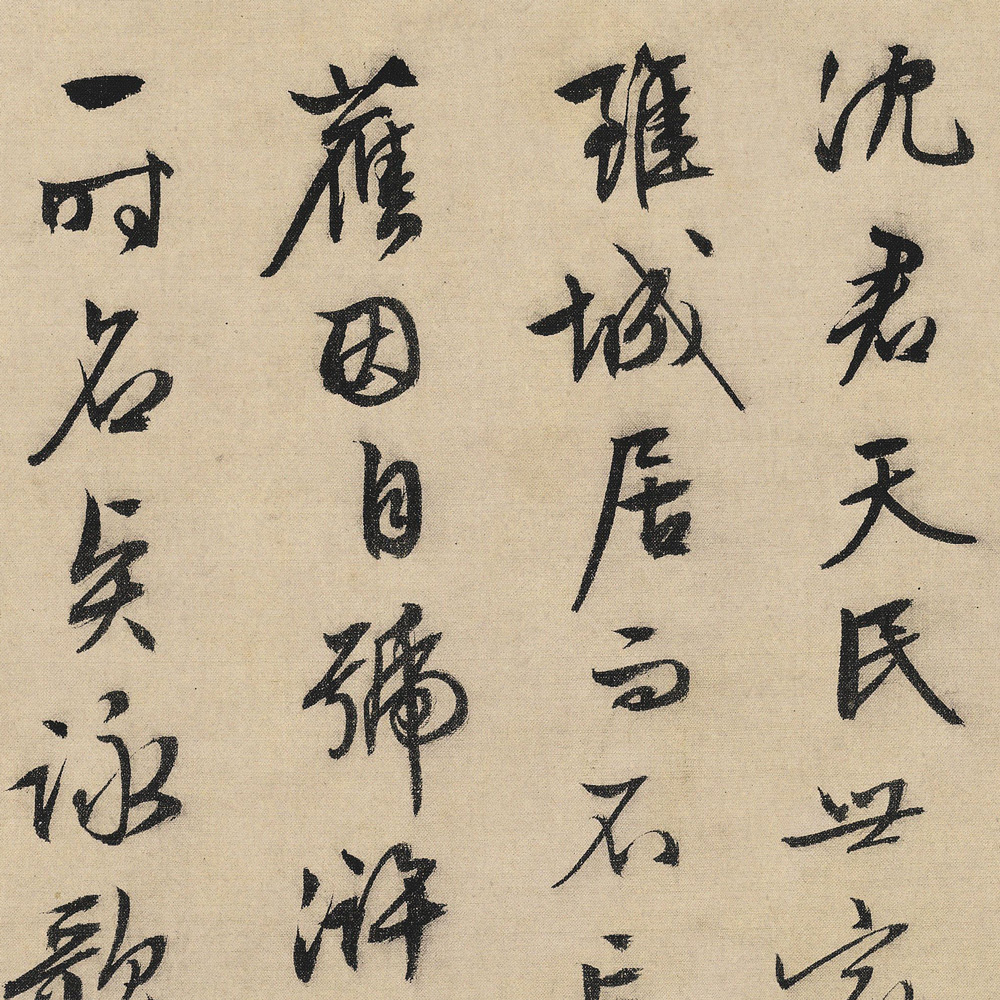 沈君天民世家
雖城居而不
舊因自號滸
一時名詠歌